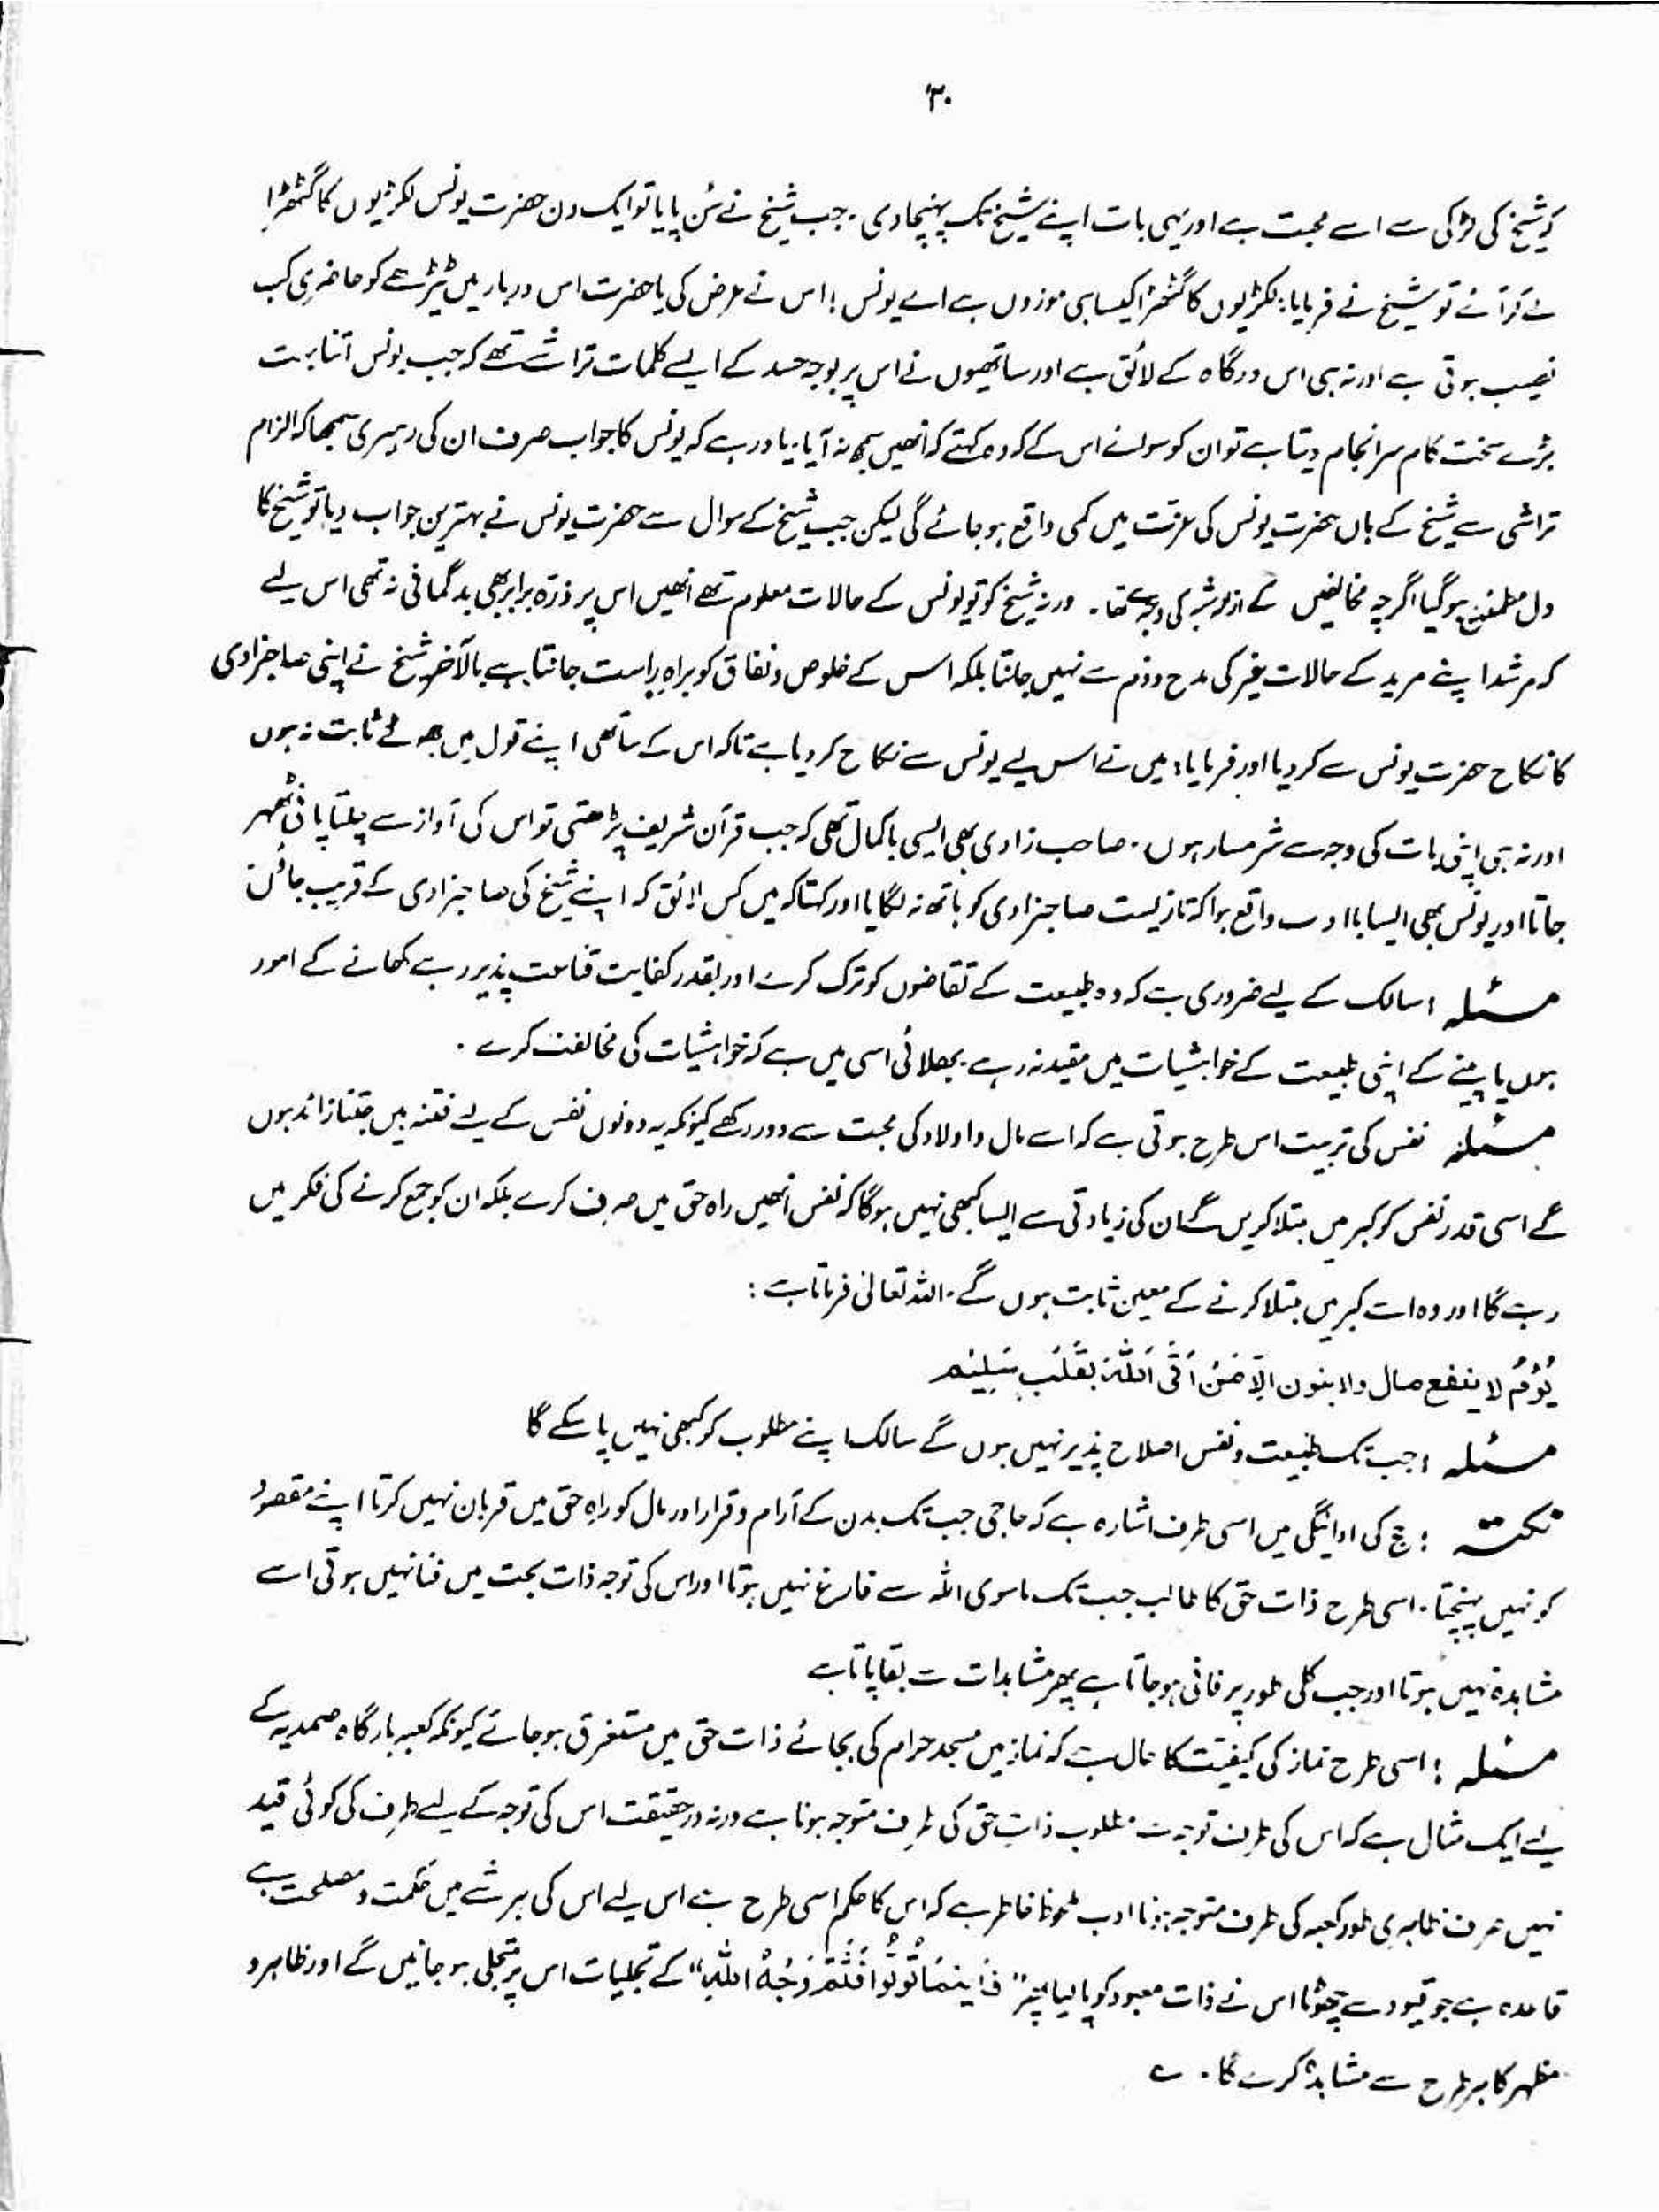 ۳۰
کہ شیخ کی لڑکی سے اسے محبت ہے اور یہی بات اپنے شیخ تک پہنچا دی۔ جب شیخ نے سُن پایا تو ایک دن حضرت یونس لکڑیوں کا گٹھڑا
لے کر آئے تو شیخ نے فرمایا: لکڑیوں کا گٹھڑا کیسا ہی موزوں ہے اے یونس! اس نے عرض کی یا حضرت اس دربار میں ٹیڑھے کو حاضری کب
نصیب ہوتی ہے اور نہ ہی اس درگاہ کے لائق ہے اور ساتھیوں نے اس پر بوجہ حسد کے ایسے کلمات تراشے تھے کہ جب یونس اتنا بہت
بڑے سخت کام سر انجام دیتا ہے تو ان کو سوائے اس کے کہ وہ کہتے کہ انھیں سمجھ نہ آیا۔ یاد رہے کہ یونس کا جواب صرف ان کی رہبری سمجھا کہ الزام
تراشی سے شیخ کے ہاں حضرت یونس کی عزت میں کمی واقع ہو جائے گی لیکن جب شیخ کے سوال سے حضرت یونس نے بہترین جواب دیا تو شیخ کا
دل مطمئن ہو گیا اگرچہ مخالفین کے کی وجہ سے تھا۔ ورنہ شیخ کو تو یونس کے حالات معلوم تھے انھیں اس پر ذرّہ برابر بھی بدگمانی نہ تھی اس لیے
کہ مرشد اپنے مرید کے حالات غیر کی مدح و ذم سے نہیں جانتا بلکہ اس کے خلوص و نفاق کو براہِ راست جانتا ہے بالآخر شیخ نے اپنی صاحبزادی
کا نکاح حضرت یونس سے کر دیا اور فرمایا: میں نے اس لیے یونس سے نکاح کر دیا ہے تاکہ اس کے ساتھی اپنے قول میں جھوٹے ثابت نہ ہوں
اور نہ ہی اپنی بات کی وجہ سے شرمسار ہوں۔ صاحب زادی بھی ایسی باکمال تھی کہ جب قرآن شریف پڑھتی تو اس کی آواز سے چلتا پانی ٹھہر
جاتا اور یونس بھی ایسا باادب واقع ہوا کہ تازیست صاحبزادی کو ہاتھ نہ لگایا اور کہتا کہ میں کس لائق کہ اپنے شیخ کی صاحبزادی کے قریب جاؤں
مسئلہ: سالک کے لیے ضروری ہے کہ وہ طبیعت کے تقاضوں کو ترک کرے اور بقدر کفایت قناعت پذیر رہے کھانے کے امور
ہوں یا پینے کے اپنی طبیعت کے خواہشیات میں مقید نہ رہے۔ بھلائی اسی میں ہے کہ خواہشیات کی مخالفت کرے۔
مسئلہ نفس کی تربیت اس طرح ہوتی ہے کہ اسے مال و اولاد کی محبت سے دور رکھے کیونکہ یہ دونوں نفس کے لیے فتنہ ہیں جتنا زائد ہوں
گے اسی قدر نفس کو کبر میں مبتلا کریں گے ان کی زیادتی سے ایسا کبھی نہیں ہوگا کہ نفس انھیں راہ حق میں صرف کرے بلکہ ان کو جمع کرنے کی فکر میں
رہے گا اور وہ اسے کبر میں مبتلا کرنے کے معین ثابت ہوں گے۔ اللہ تعالیٰ فرماتا ہے:
يَوْمَ لا ينفع مال ولا بنون الّا مَنْ اَتَى اللّٰهَ بِقَلْبٍ سَلِيْم
مسئلہ: جب تک طبیعت و نفس اصلاح پذیر نہیں ہوں گے سالک اپنے مطلوب کو کبھی نہیں پا سکے گا
نکتہ: حج کی ادائیگی میں اسی طرف اشارہ ہے کہ حاجی جب تک بدن کے آرام و قرار اور مال کو راہِ حق میں قربان نہیں کرتا اپنے مقصود
کو نہیں پہنچتا۔ اسی طرح ذات حق کا طالب جب تک ماسوی اللہ سے فارغ نہیں ہوتا اور اس کی توجہ ذات بحت میں فنا نہیں ہوتی اسے
مشاہدہ نہیں ہوتا اور جب کلی طور پر فانی ہو جاتا ہے پھر مشاہدات سے بقا پاتا ہے
مسئلہ: اسی طرح نماز کی کیفیت کا حال ہے کہ نماز میں مسجد حرام کی بجائے ذات حق میں مستغرق ہو جائے کیونکہ کعبہ بارگاہ صمدیہ کے
لیے ایک مثال ہے کہ اس کی طرف توجہ سے مطلوب ذاتِ حق کی طرف متوجہ ہونا ہے ورنہ در حقیقت اس کی توجہ کے لیے طرف کی کوئی قید
نہیں صرف ظاہری طور کعبہ کی طرف متوجہ ہونا ادب ملحوظ خاطر ہے کہ اس کا حکم اسی طرح ہے اس لیے اس کی ہر شے میں حکمت و مصلحت ہے
قاعدہ ہے جو قیود سے چھوٹا اس نے ذات معبود کو پا لیا پھر "فَاَيْنَمَا تُوَلُّوْا فَثَمَّ وَجْهُ اللّٰهِ" کے تجلیات اس پر متجلی ہو جائیں گے اور ظاہر و
مظہر کا ہر طرح سے مشاہدہ کرے گا۔ ے